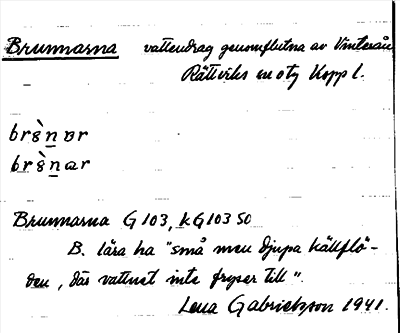 Brunnarna vattendrag genomflutna av Vinterån
Rättviks sn o tg Kopp l.
brɛ̀n̲ ɐr
brɛ̀n̲ ar
Brunnarna G 103, kG 103 SO
B. lära ha "små men djupa källflö-
den, där vattnet inte fryser till".
Lena Gabrielsson 1941.